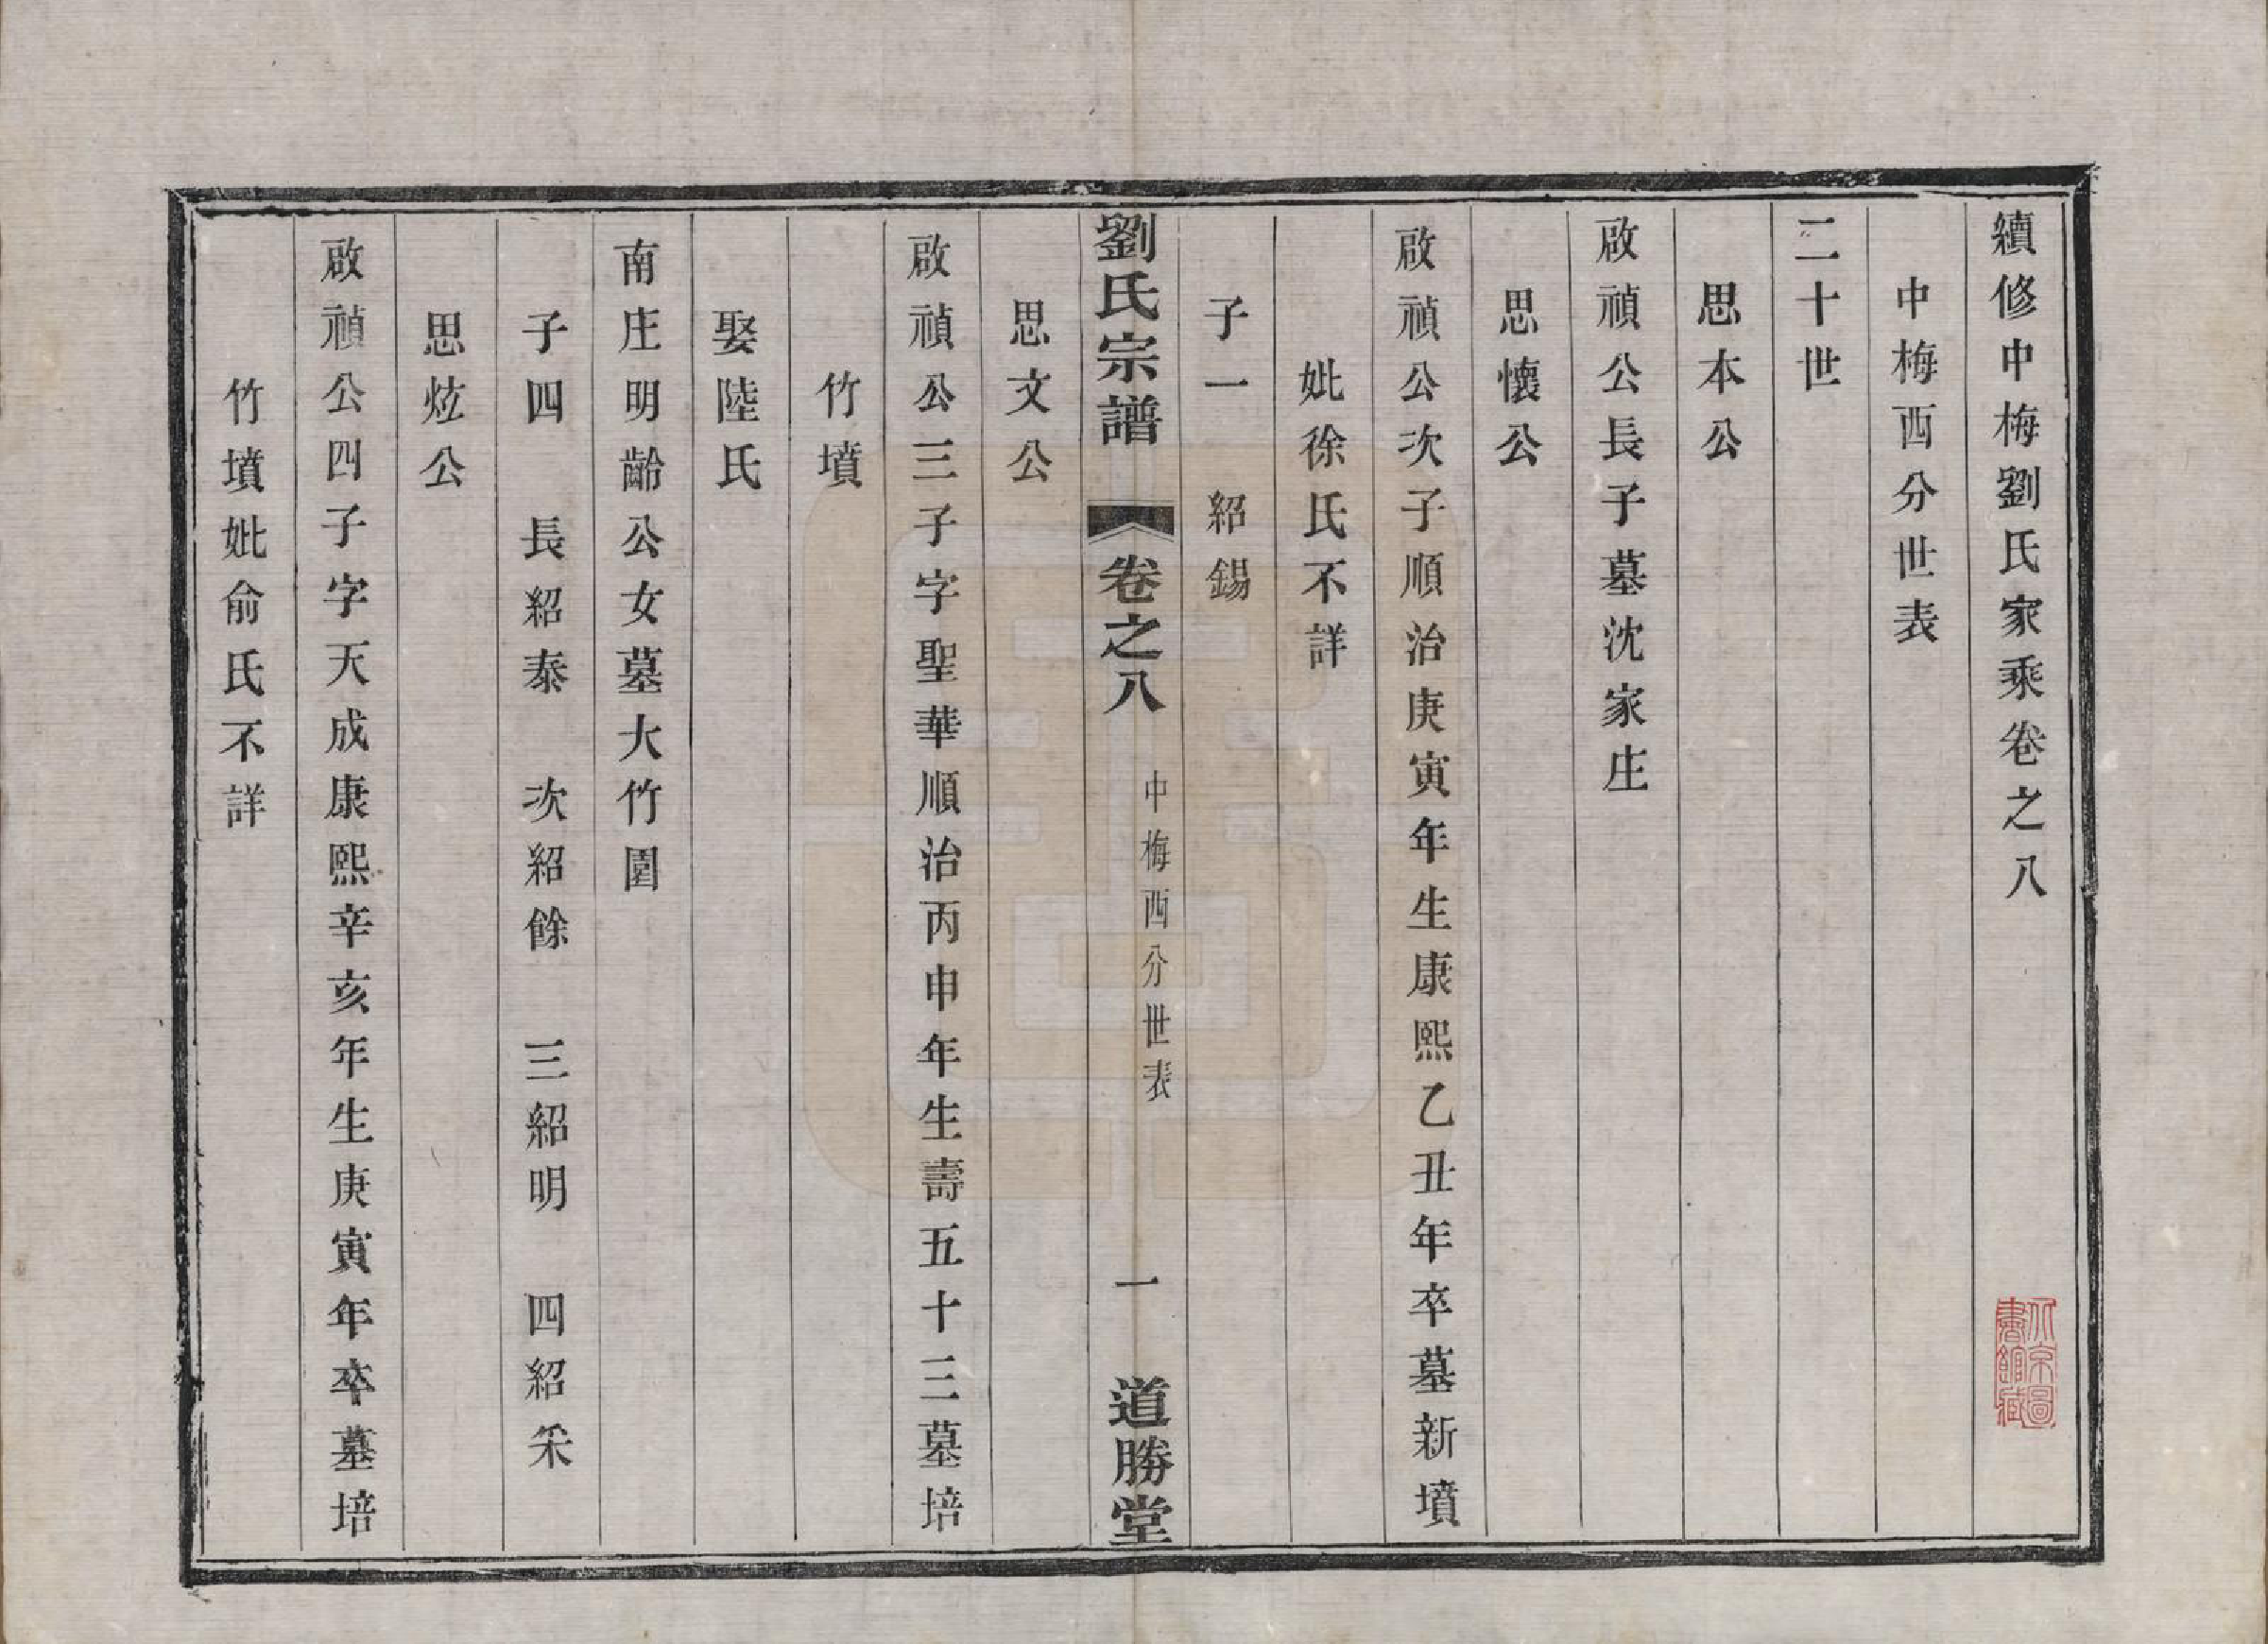 續修中梅劉氏家乘卷之八
中梅西分世表
二十世
思本公
啟禎公長子墓沈家庄
思懷公
啟禎公次子順治庚寅年生康熙乙丑年卒墓新墳
妣徐氏不詳
子一　紹錫
劉氏宗譜　卷之八　中梅西分世表　一　道勝堂
思文公
啟禎公三子字聖華順治丙申年生壽五十三墓培
竹墳
娶陸氏
南庄明齡公女墓大竹園
子四　長紹泰　次紹餘　三紹明　四紹采
思炫公
啟禎公四子字天成康熙辛亥年生庚寅年卒墓培
竹墳妣俞氏不詳
北京圖
書館藏